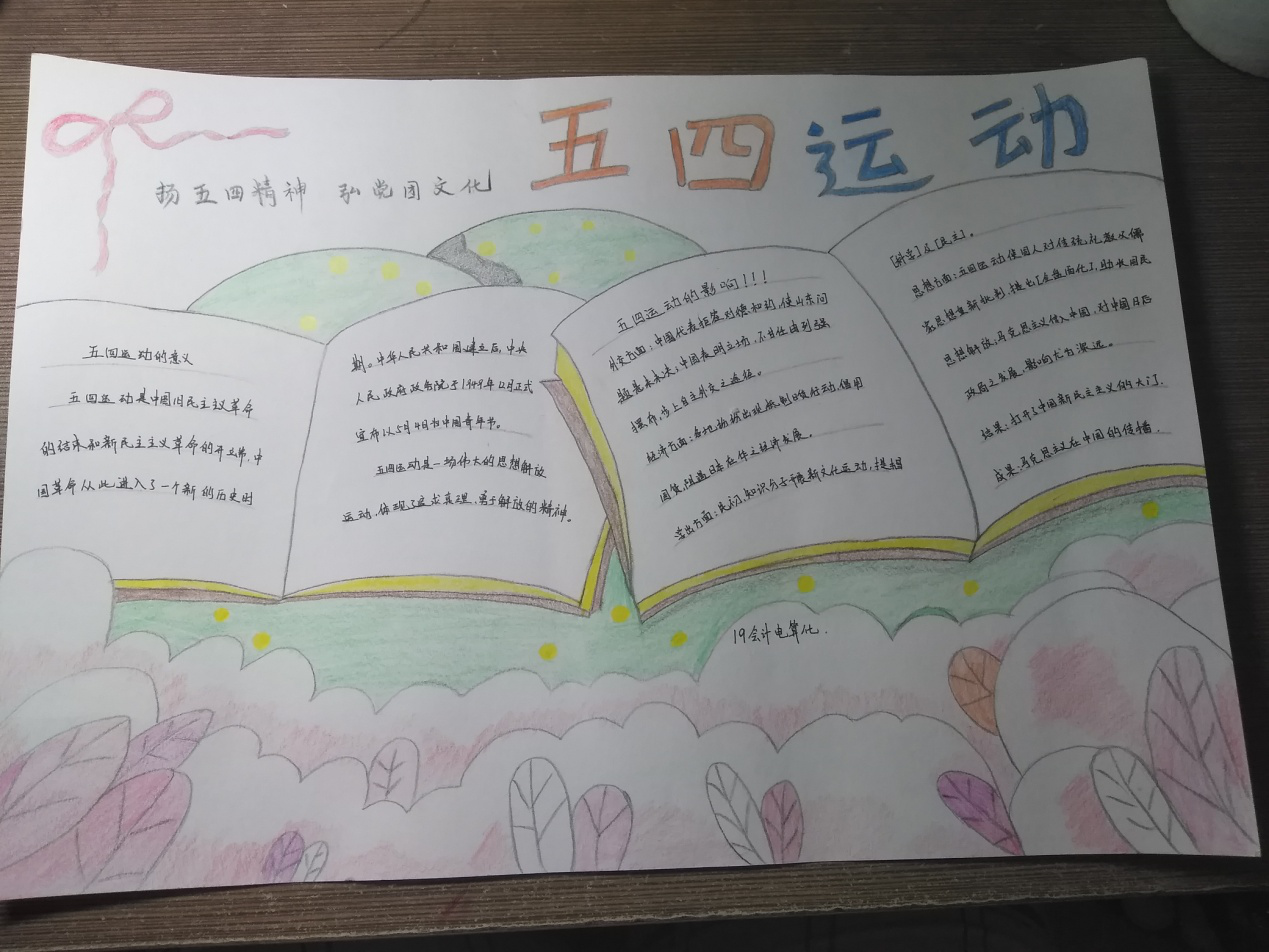 五四运动
扬五四精神 弘党团文化
五四运动的意义
五四运动是中国旧民主主义革命
的结束和新民主主义革命的开端，中
国革命从此进入了一个新的历史时
期。中华人民共和国建立后，中央
人民政府政务院于1949年12月正式
宣布以5月4日为中国青年节。
五四运动是一场伟大的思想解放
运动，体现了追求真理，勇于解放的精神。
五四运动的影响！！！
外交方面：中国代表拒签对德和约，使山东问
题悬未来决，中国表明立场，不再任由列强
摆布，步上自主外交之途径。
经济方面：各地纷纷出现抵制日货行动，倡用
国货，阻遏日本在华之经济发展。
文化方面：民初，知识分子开展新文化运动，提倡
[科学]及[民主]。
思想方面：五四运动使国人对传统礼教以儒
家思想重新批判，提出了全盘西化了，助长国民
思想解放，马克思主义传入中国，对中国日后
政局之发展，影响尤为深远。
结果：打开了中国新民主主义的大门.
成果：马克思主义在中国的传播.
19会计电算化.